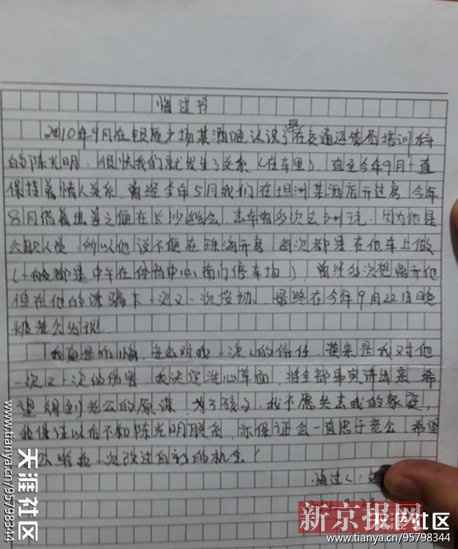 悔过书
2010年9月在银质广场某酒吧认识了在交通运输局培训科
的陈光明，很快我们就发生了关系（在车里），直至今年9月一直
保持着情人关系，曾经今年5月我们在坦洲某酒店开过房，今年
8月借着出差之便在长沙幽会，
公职人员，所以他说不便在珠海开房，每次都是在他车上做
（一般都是中午在体育中心南门停车场），曾经多次想离开他
但在他的诱骗下一次又一次
被老公发现。
我真是好后悔，老公对我一次次的信任，换来是我又对他
一次又一次的伤害，我决定洗心革面，将全部事实讲出来，希
望得到老公的原谅，为了孩子，我不愿失去我的家庭，
我保证以后不和陈光明联系，亦保证会一直忠于老公，希望
老公给我一次改过自新的机会！
悔过人：
天涯社区
www.tianya.cn/95798344
新京报网
天涯社区
www.tianya.cn/95798344